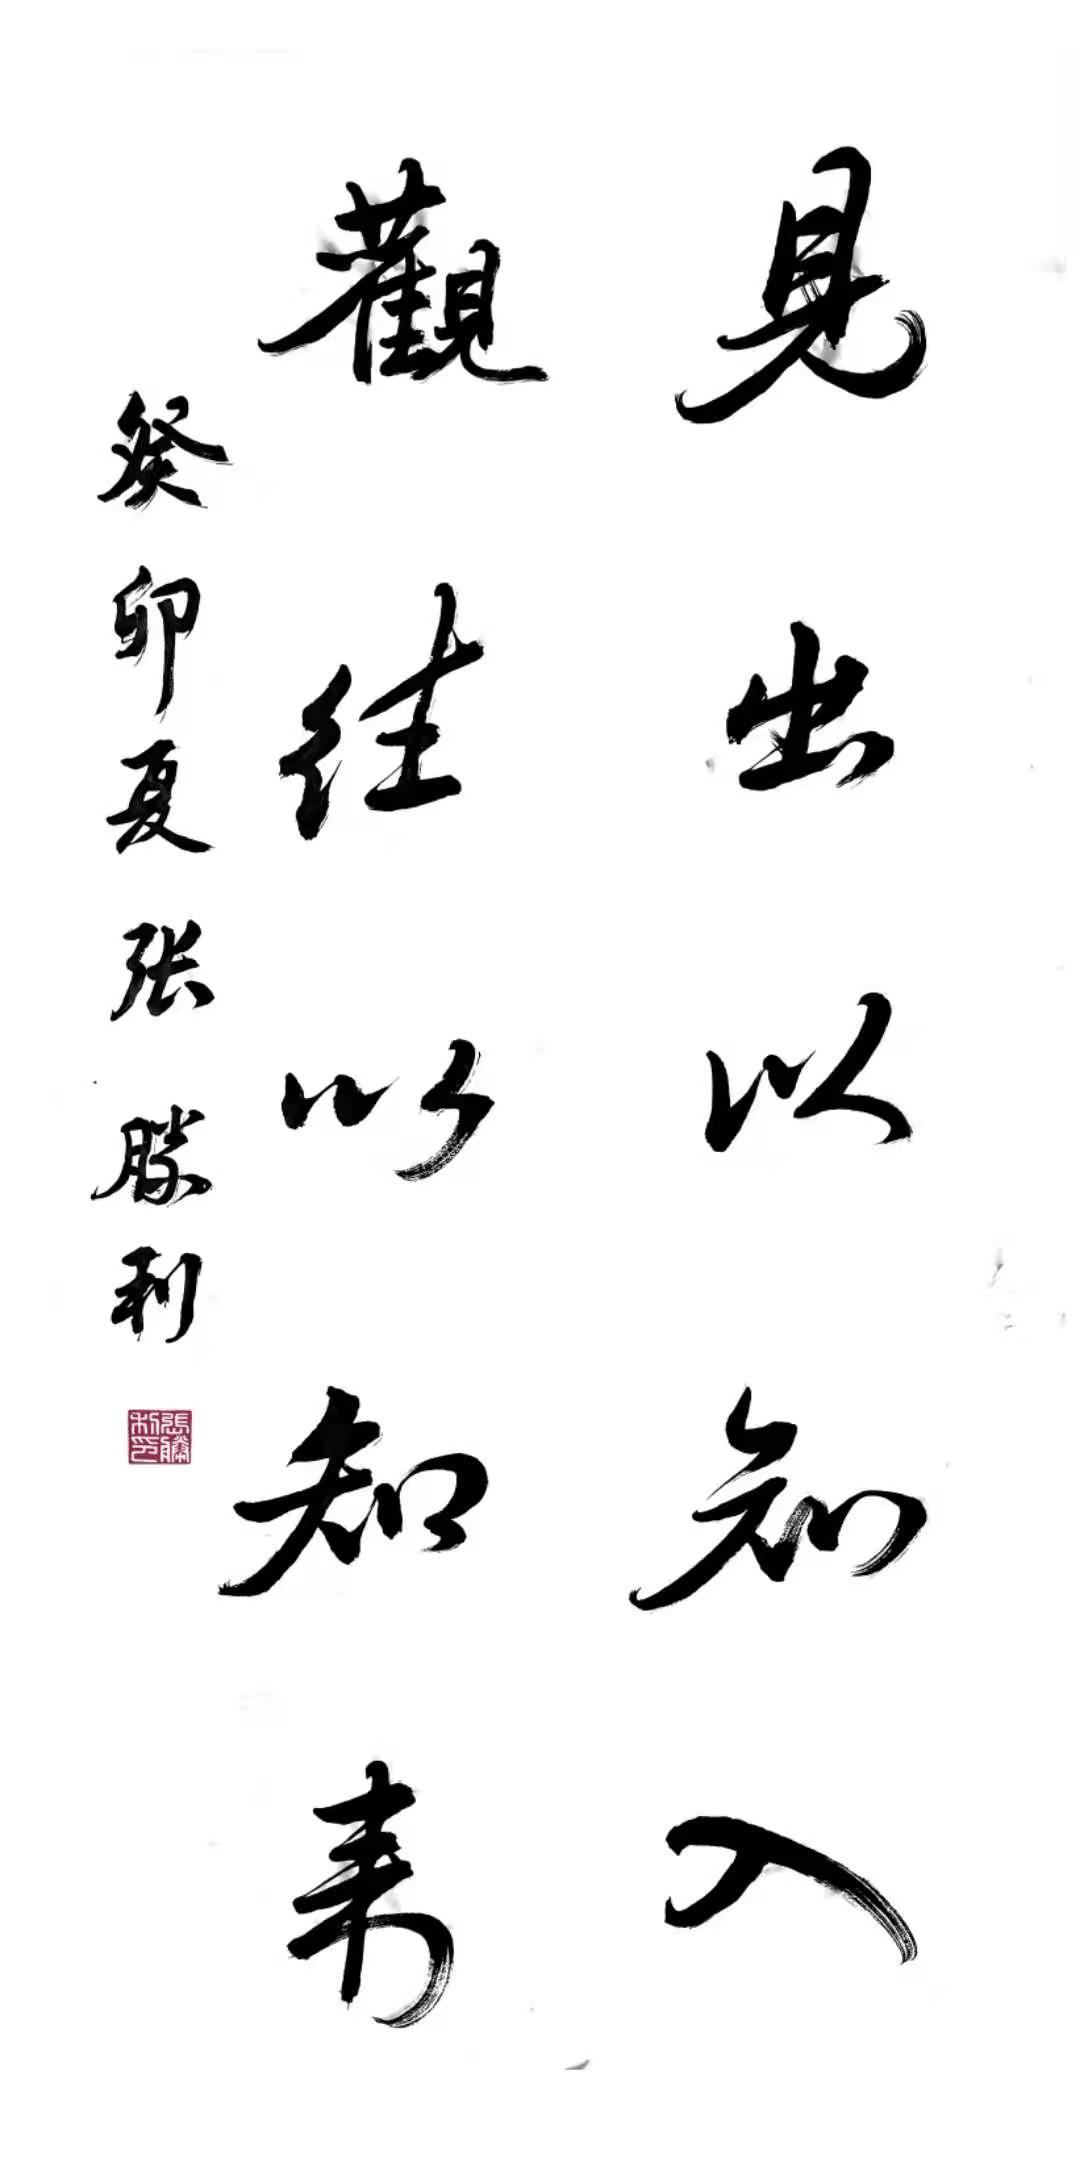 見出以知入
觀往以知来
癸卯夏张勝利
張勝利印